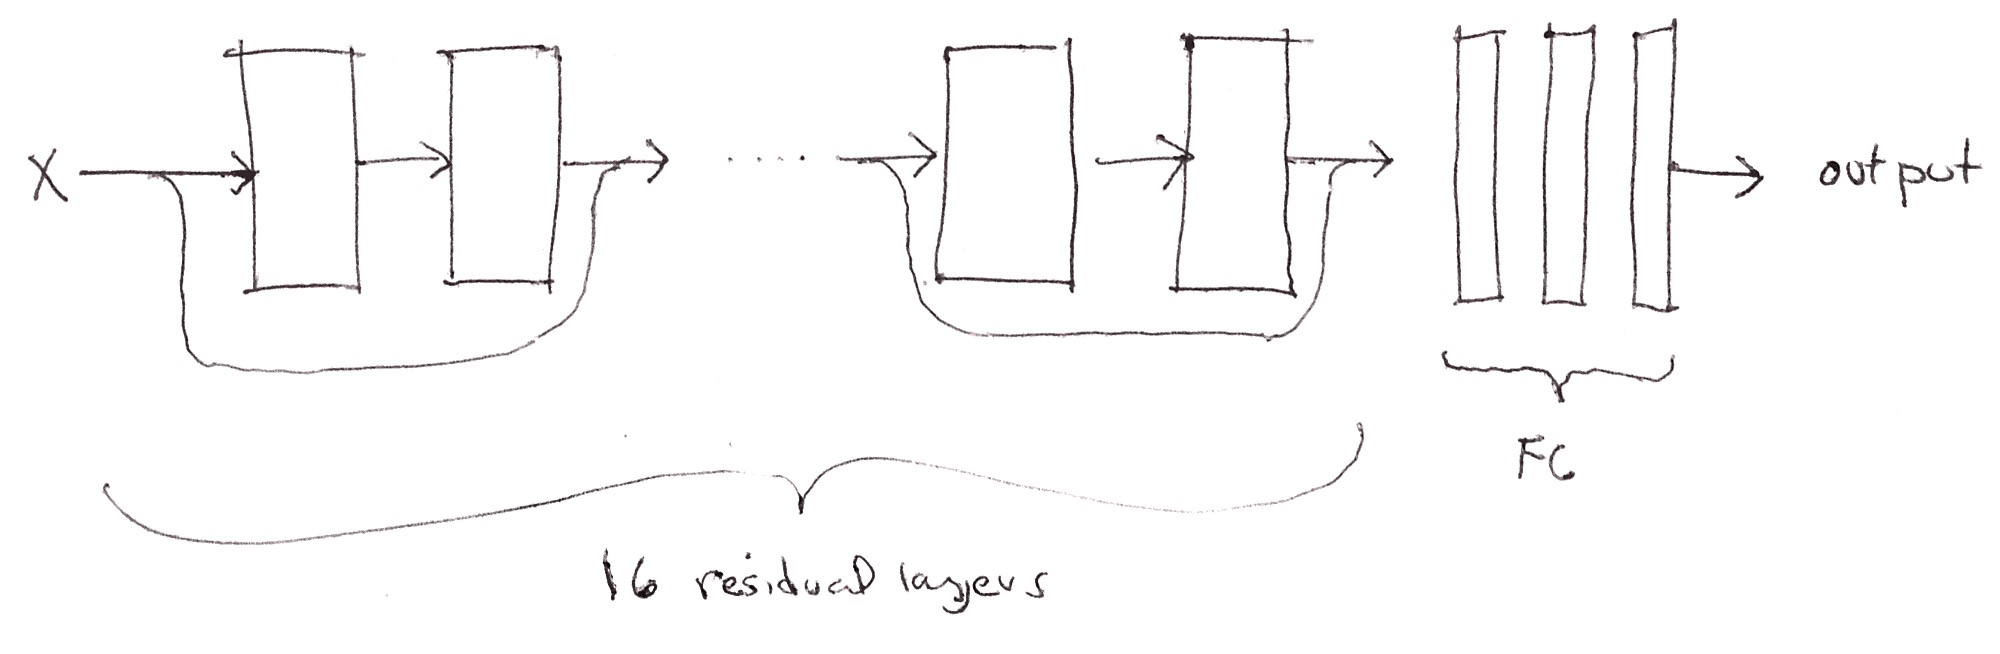 X
output
FC
16 residual layers